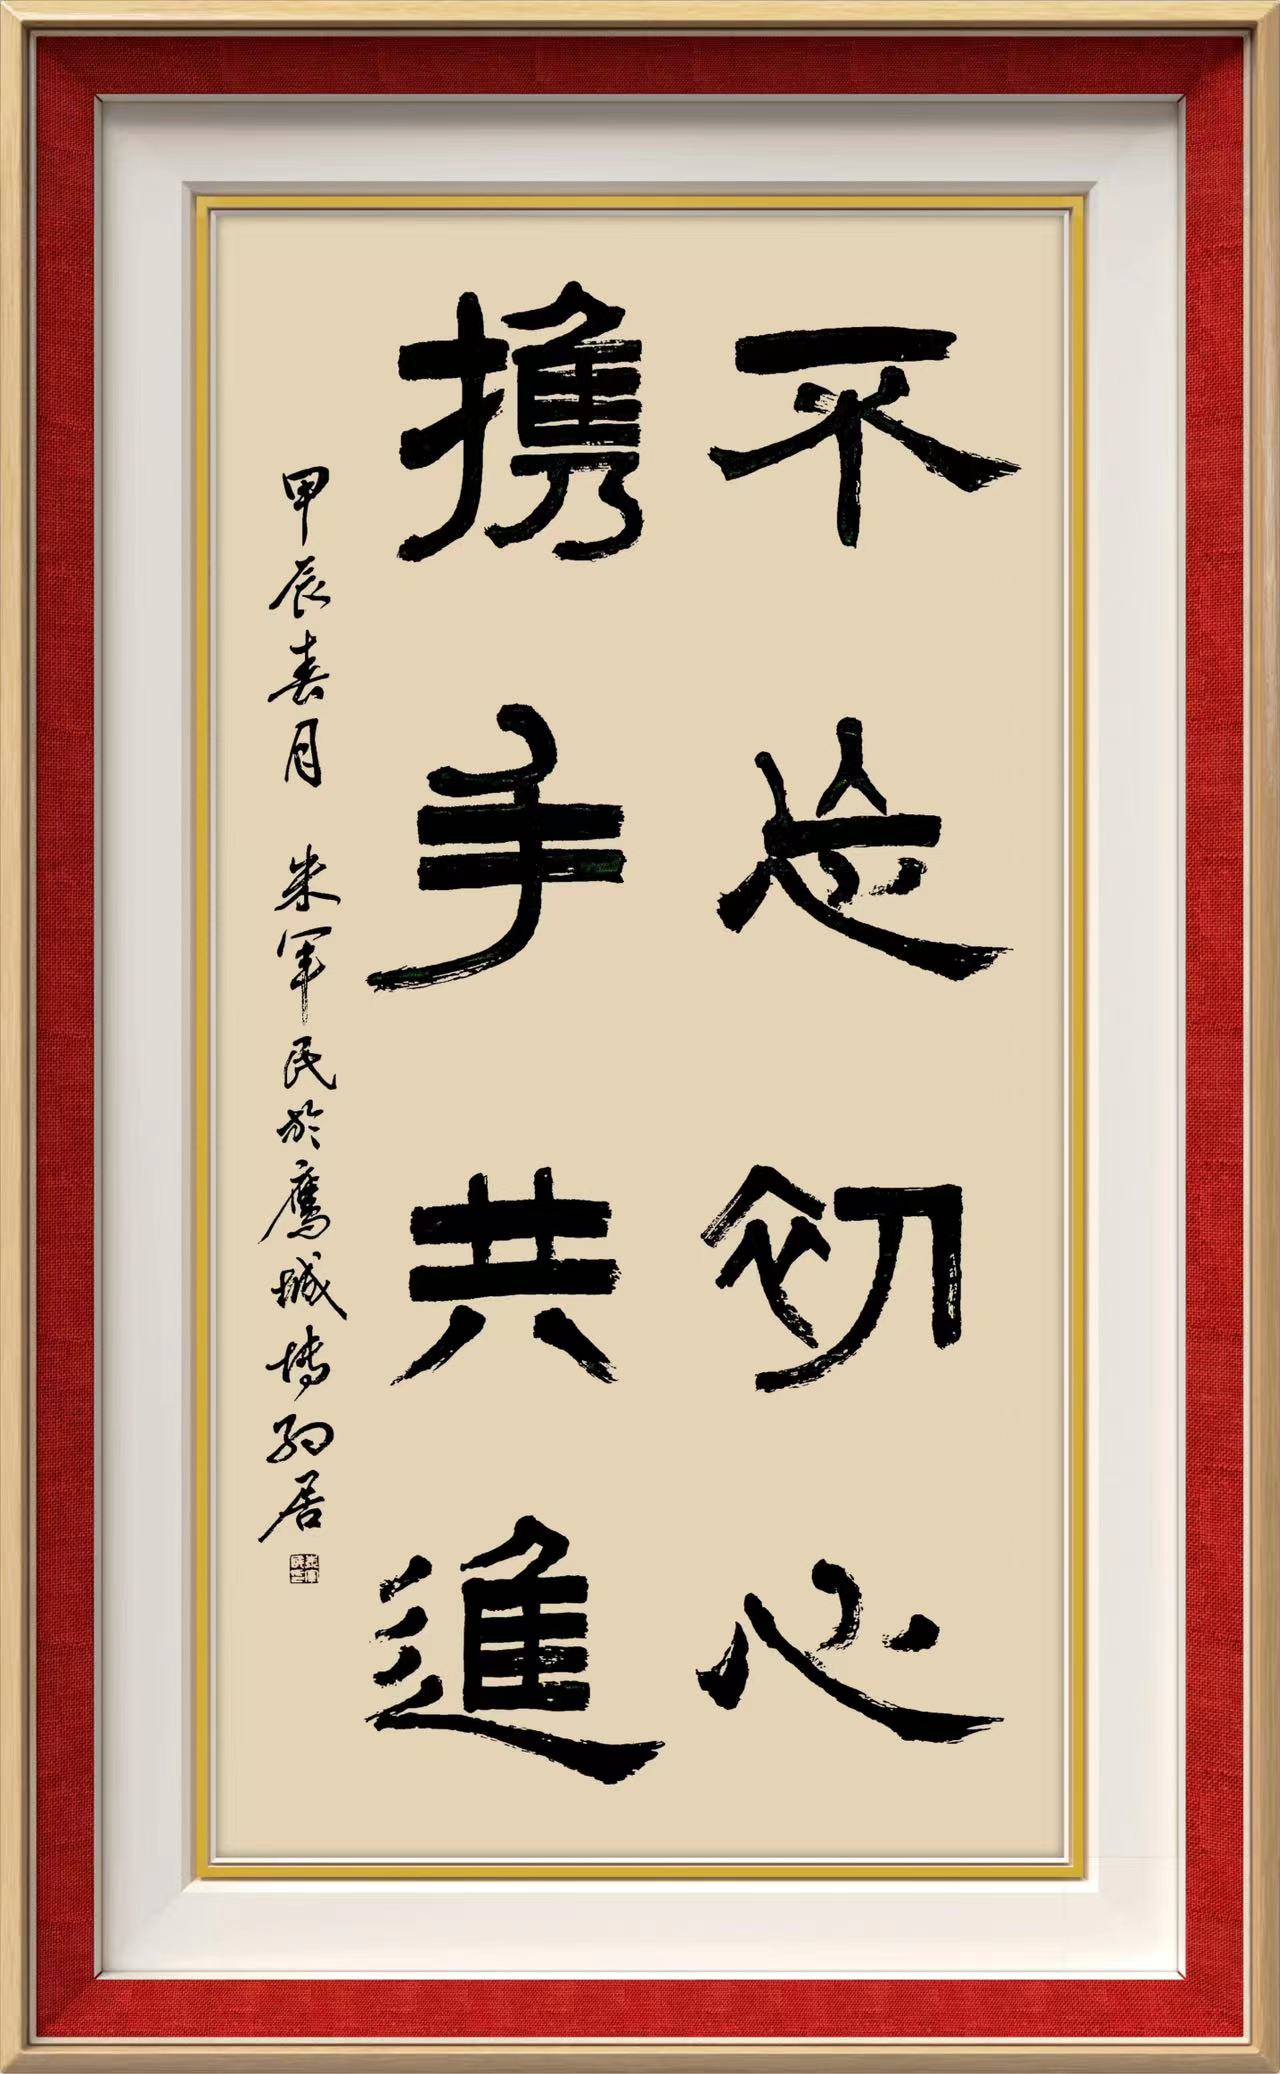 不忘初心
携手共進
甲辰春月 朱军民於鹰城博約居